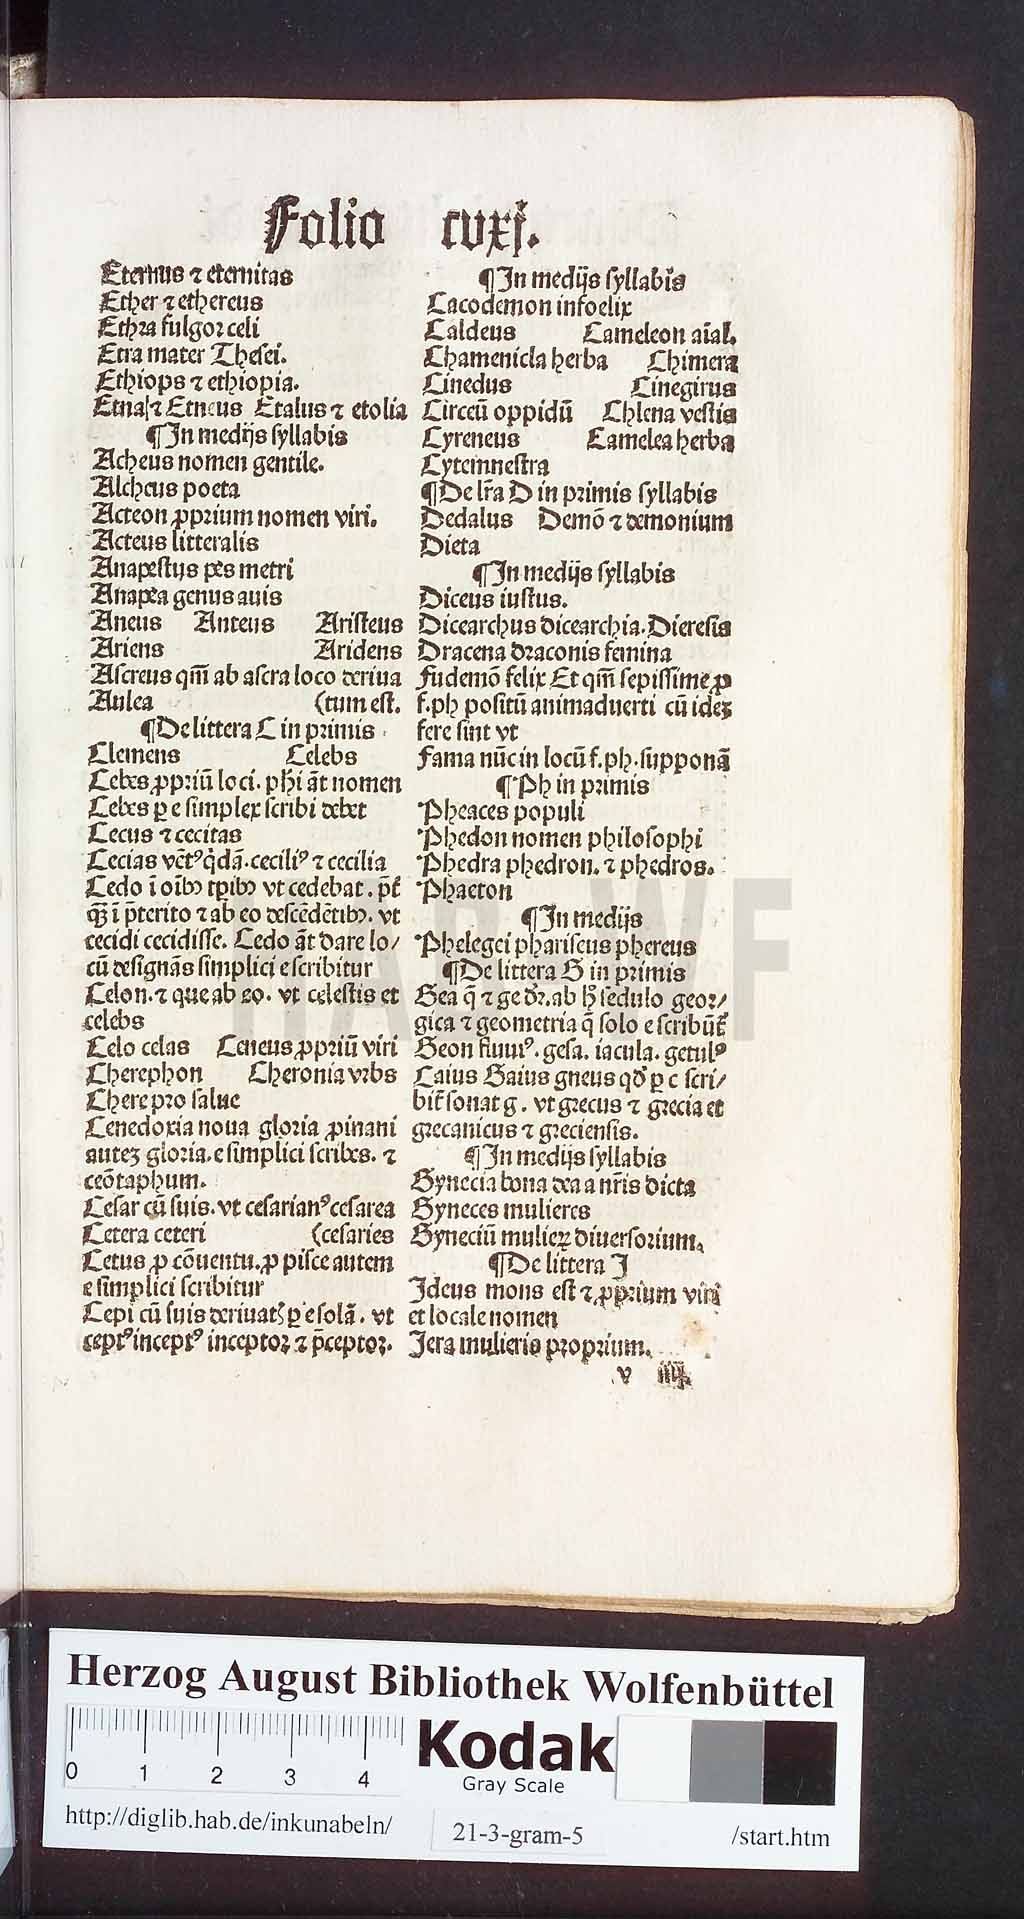 Folio cvxj.
Eternus ⁊ eternitas
Ether ⁊ ethereus
Ethra fulgor celi
Etra mater Thesei.
Ethiops ⁊ ethiopia.
Etna ⁊ Etneus Etalus ⁊ etolia
¶In medijs syllabis
Acheus nomen gentile.
Alcheus poeta
Acteon ꝓprium nomen viri.
Acteus litteralis
Anapestijs pes metri
Anapea genus auis
Aneus Anteus Aristeus
Ariens Aridens
Ascreus qm̄ ab ascra loco deriua
Aulea (tum est.
¶De littera C in primis
Clemens Celebs
Cebes ꝓpriū loci. phi āt nomen
Cebes ꝑ e simplex scribi debet
Cecus ⁊ cecitas
Cecias vēt⁹ q̇dā. cecili⁹ ⁊ cecilia
Cedo ī oīb₉ tꝑib₉ vt cedebat. p̄t̄
qꝫ ī p̄terito ⁊ ab eo descēdētib₉. vt
cecidi cecidisse. Cedo āt dare lo/
cū designās simplici e scribitur
Celon. ⁊ que ab eo. vt celestis et
celebs
Celo celas Ceneus ꝓpriū viri
Cherephon Cheronia vrbs
Chere pro salue
Cenedoxia noua gloria ꝓ inani
autez gloria. e simplici scribes. ⁊
ceōtaphum.
Cesar cū suis. vt cesarian⁹ cesarea
Cetera ceteri (cesaries
Cetus ꝓ cōuentu. ꝓ pisce autem
e simplici scribitur
Cepi cū suis deriuat̄ ꝑ e solā. vt
cept⁹ incept⁹ inceptoꝛ ⁊ p̄ceptoꝛ.
¶In medijs syllabis
Cacodemon infoelix
Caldeus Cameleon aīal.
Chamenicla herba Chimera
Cinedus Cinegirus
Circeū oppidū Chlena vestis
Cyreneus Camelea herba
Cytemnestra
¶De lr̄a D in primis syllabis
Dedalus Demō ⁊ demonium
Dieta
¶In medijs syllabis
Diceus iustus.
Dicearchus dicearchia. Dieresis
Dracena draconis femina
Fudemō felix Et qm̄ sepissime ꝓ
f. ph positū animaduerti cū idez
fere sint vt
Fama nūc in locū f. ph. supponā
¶Ph in primis
Pheaces populi
Phedon nomen philosophi
Phedra phedron. ⁊ phedros.
Phaeton
¶In medijs
Phelegei phariseus phereus
¶De littera G in primis
Gea q̄ ⁊ ge dr̄. ab h⁹ sedulo geor/
gica ⁊ geometria q̄ solo e scribūt̄
Geon fluui⁹. gesa. iacula. getul⁹
Caius Gaius gneus qđ ꝑ c scri/
bit̄ sonat g. vt grecus ⁊ grecia et
grecanicus ⁊ greciensis.
¶In medijs syllabis
Gynecia bona dea a nr̄is dicta
Gyneces mulieres
Gyneciū mulieꝝ diuersorium.
¶De littera I
Ideus mons est ⁊ ꝓprium viri
et locale nomen
Jera mulieris proprium.
v iiij
HAB WF
Herzog August Bibliothek Wolfenbüttel
0 1 2 3 4
Kodak
Gray Scale
http://diglib.hab.de/inkunabeln/
21-3-gram-5
/start.htm